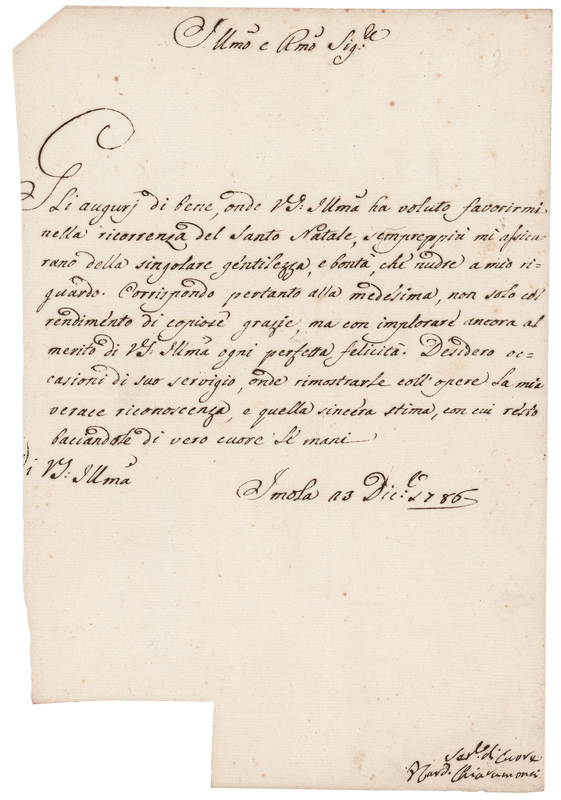 Illmo e Rmo Sig.re
Gli augurj di bene, onde VS: Illma ha voluto favorirmi
nella ricorrenza del Santo Natale, sempreppiù mi assicu-
rano della singolare gentilezza, e bontà, che nudre a mio ri-
guardo. Corrispondo pertanto alla medesima, non solo col
rendimento di copiose grazie, ma con implorare ancora al
merito di VS: Illma ogni perfetta felicità. Desidero oc-
casioni di suo servigio, onde rimostrarle coll'opere la mia
verace riconoscenza, e quella sincera stima, con cui resto
baciandole di vero cuore le mani
Di VS: Illma
Imola 23 Dic.e 1786
di Cuore
Card. Chiaramonti